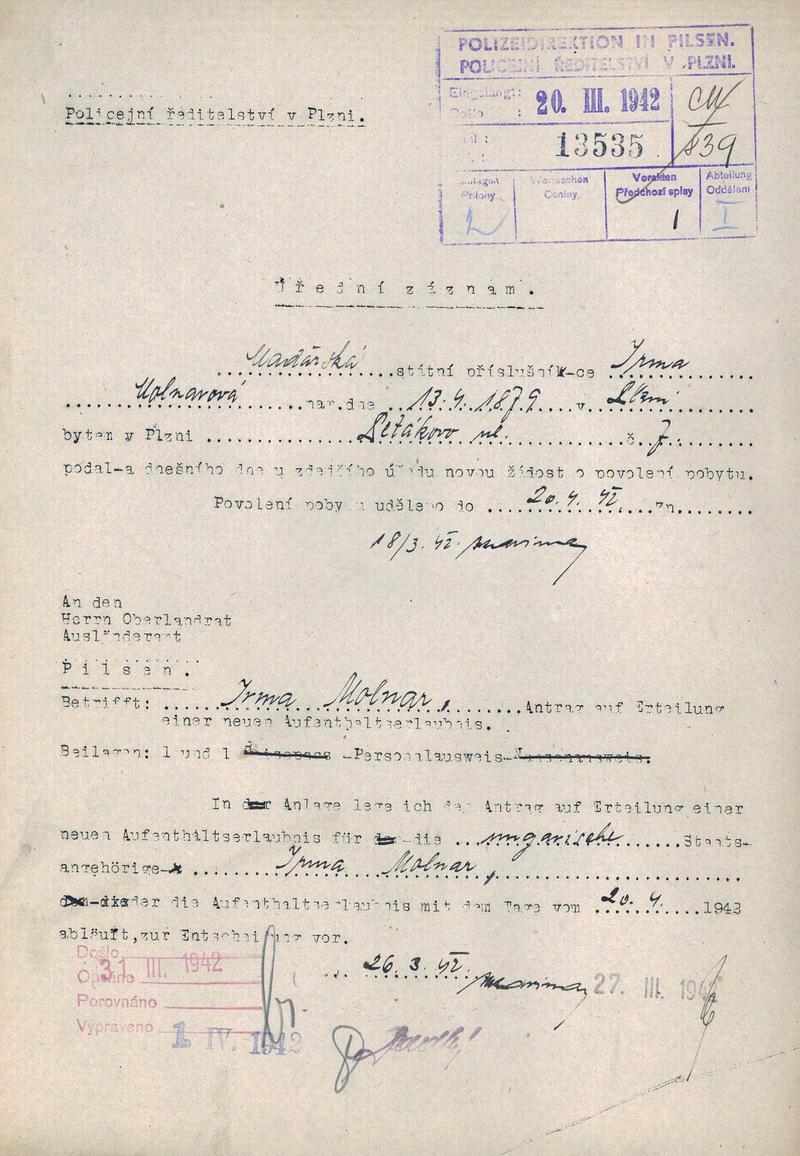 POLIZEIDIREKTION IN PILSEN.
POLICEJNÍ ŘEDITELSTVÍ V PLZNI.
Eingelangt:
Došlo:
20. III. 1942
13535
839
Přílohy
2
Wertsachen
Ceniny.
Vorakten
Předchozí spisy
1
Abteilung
Oddělení
I
Policejní ředitelství v Plzni.
Úřední záznam.
Maďarská státní příslušník-ce Irma
Molnarová nar. dne 13.4.1879 v Plzni
bytem v Plzni Petákova ul. č. 7.
podal-a dnešního dne u zdejšího úřadu novou žádost o povolení pobytu.
Povolení pobytu uděleno do 20.4.42. zn
18/3. 42.
An den
Herrn Oberlandrat
Ausländeramt
Pilsen.
Betrifft: Irma Molnar, Antrag auf Erteilung
einer neuen Aufenthaltserlaubnis.
Beilagen: 1 und 1 Reisepass -Personalausweis-
In der Anlage lege ich den Antrag auf Erteilung einer
neuen Aufenthaltserlaubnis für den-die ungarische Staats-
angehörige-n Irma Molnar,
der die Aufenthaltserlaubnis mit dem Tage vom 20.4. 1942
abläuft, zur Entscheidung vor.
26.3.42.
27. III. 194
Došlo
31 III. 1942
Opsáno
Porovnáno
Vypraveno
1 IV. 1942